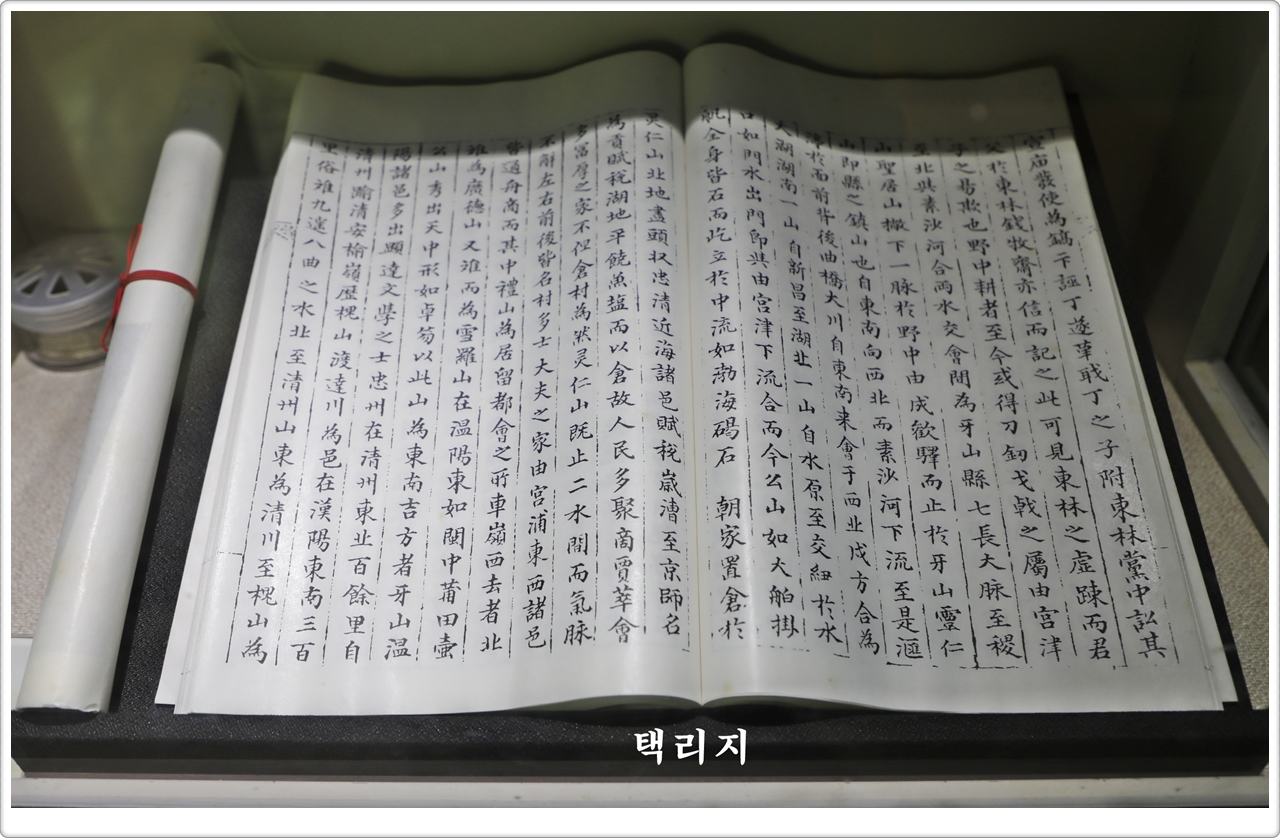 宣庙發使為鎬卞誣丁遂華戢丁之子附東林黨中訟其
父於東林錢牧齋亦信而記之此可見東林之虛踈而君
子之易欺也野中耕者至今或得刀釰戈戟之屬由宮津
至北與素沙河合兩水交會閒為牙山縣七長大脉至稷
山聖居山撤下一脉於野中由成歡驛而止於牙山靈仁
山即縣之鎮山也自東南向西北而素沙河下流至是滙
渟於面前背後曲橋大川自東南来會于西北戌方合為
大湖湖南一山自新昌至湖北一山自水原至交紐於水
口如門水出門即與由宮津下流合而今公山如大舶掛
帆全身皆石而屹立於中流如渤海碣石 朝家置倉於
灵仁山北地盡頭収忠清近海諸邑賦稅歲漕至京師名
為貢賦稅湖地平饒魚塩而以倉故人民多聚商賈萃會
多富厚之家不但倉村為然灵仁山既止二水閒而氣脉
不解左右前後皆名村多士大夫之家由宮浦東西諸邑
皆通舟商而其中禮山為居留都會之所車嶺西去者北
雖為廣德山又雖而為雪羅山在溫陽東如閩中莆田壷
公山秀出天中形如卓笏以此山為東南吉方者牙山溫
陽諸邑多出顯達文學之士忠州在清州東北百餘里自
清州瀚清安楡嶺歷槐山渡達川為邑在漢陽東南三百
里俗雖九遠八曲之水北至清州山東為清川至槐山為
택리지